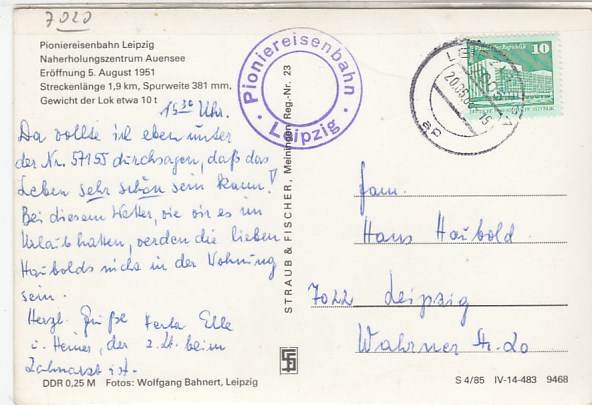 7020
Pioniereisenbahn Leipzig
Naherholungszentrum Auensee
Eröffnung 5. August 1951
Streckenlänge 1,9 km, Spurweite 381 mm,
Gewicht der Lok etwa 10 t
15³⁰ Uhr.
Da wollte ich eben unter
der Nr. 57155 durchsagen, daß das
Leben sehr schön sein kann!
Bei diesem Wetter, wie wir es im
Urlaub hatten, werden die lieben
Haubolds nicht in der Wohnung
sein.
Herzl. Grüße Herta Elle
u. Heiner, der z. Zt. beim
Zahnarzt ist.
DDR 0,25 M Fotos: Wolfgang Bahnert, Leipzig
Pioniereisenbahn
Leipzig
STRAUB & FISCHER, Meiningen Reg.-Nr. 23
LEIPZIG
7005
20.05.
10
Fam.
Hans Haubold
7022 Leipzig
Wahrner Str. 20
S 4/85 IV-14-483 9468